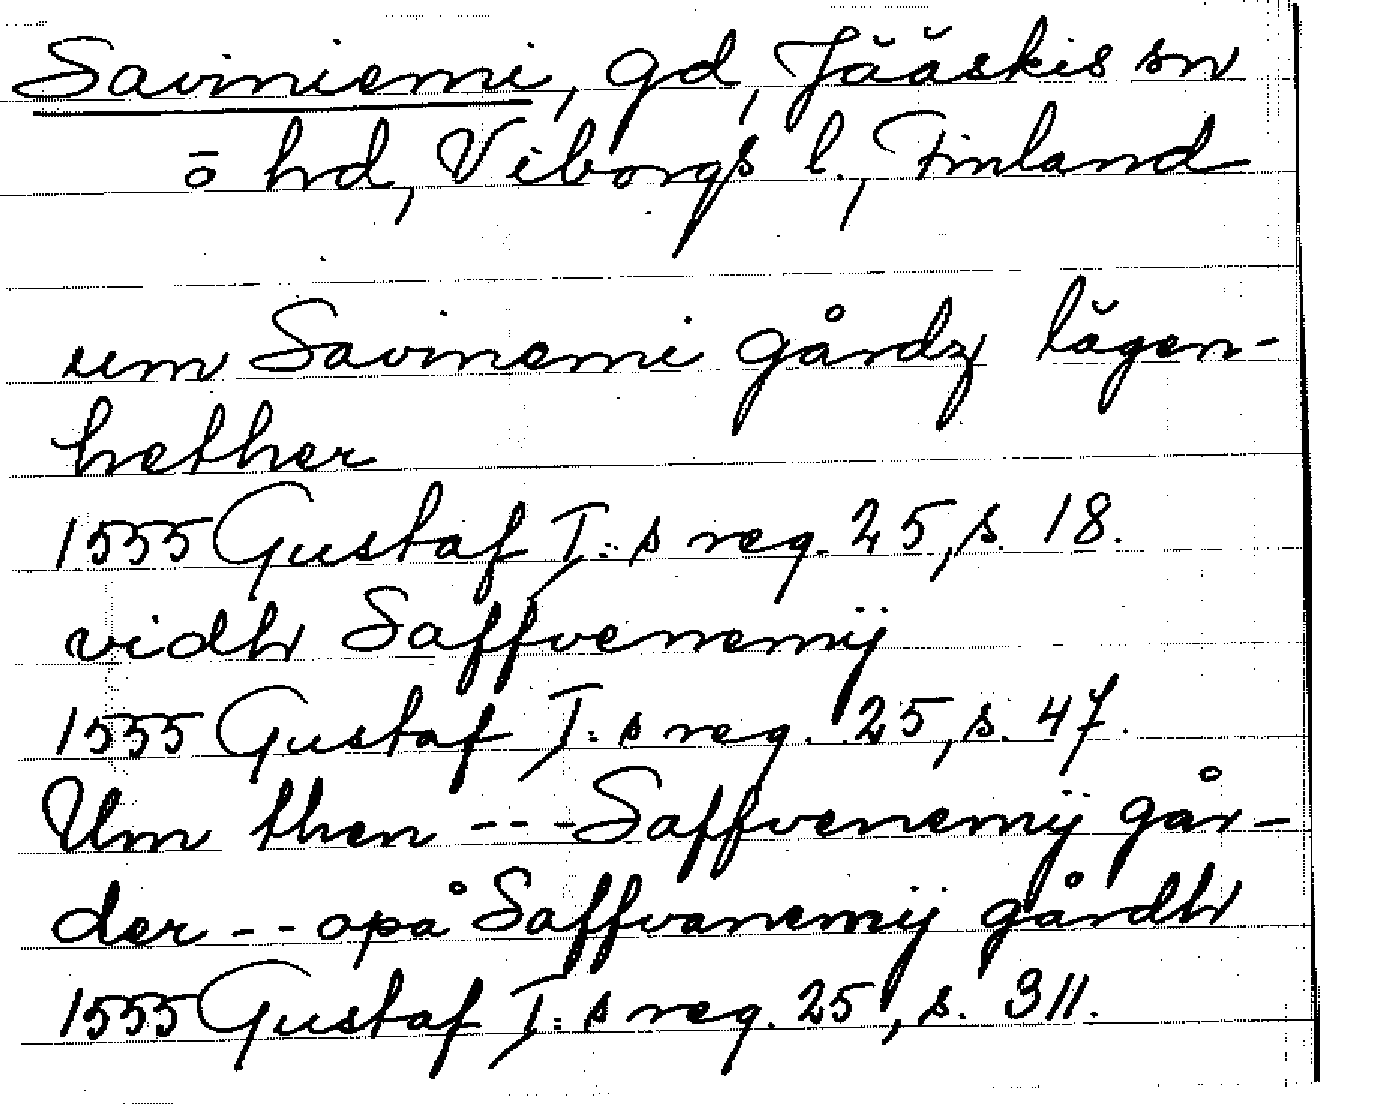 Saviniemi, gd, Jääskis sn
ō hd, Viborgs l., Finland
um Saviniemi gårdz lägen-
hether
1555 Gustaf I:s reg. 25, s. 18.
vidh Saffvenemÿ
1555 Gustaf I:s reg. 25, s. 47.
Um then --- Saffvenemÿ går-
der -- opå Saffvanemÿ gårdh
1555 Gustaf I:s reg. 25, s. 311.